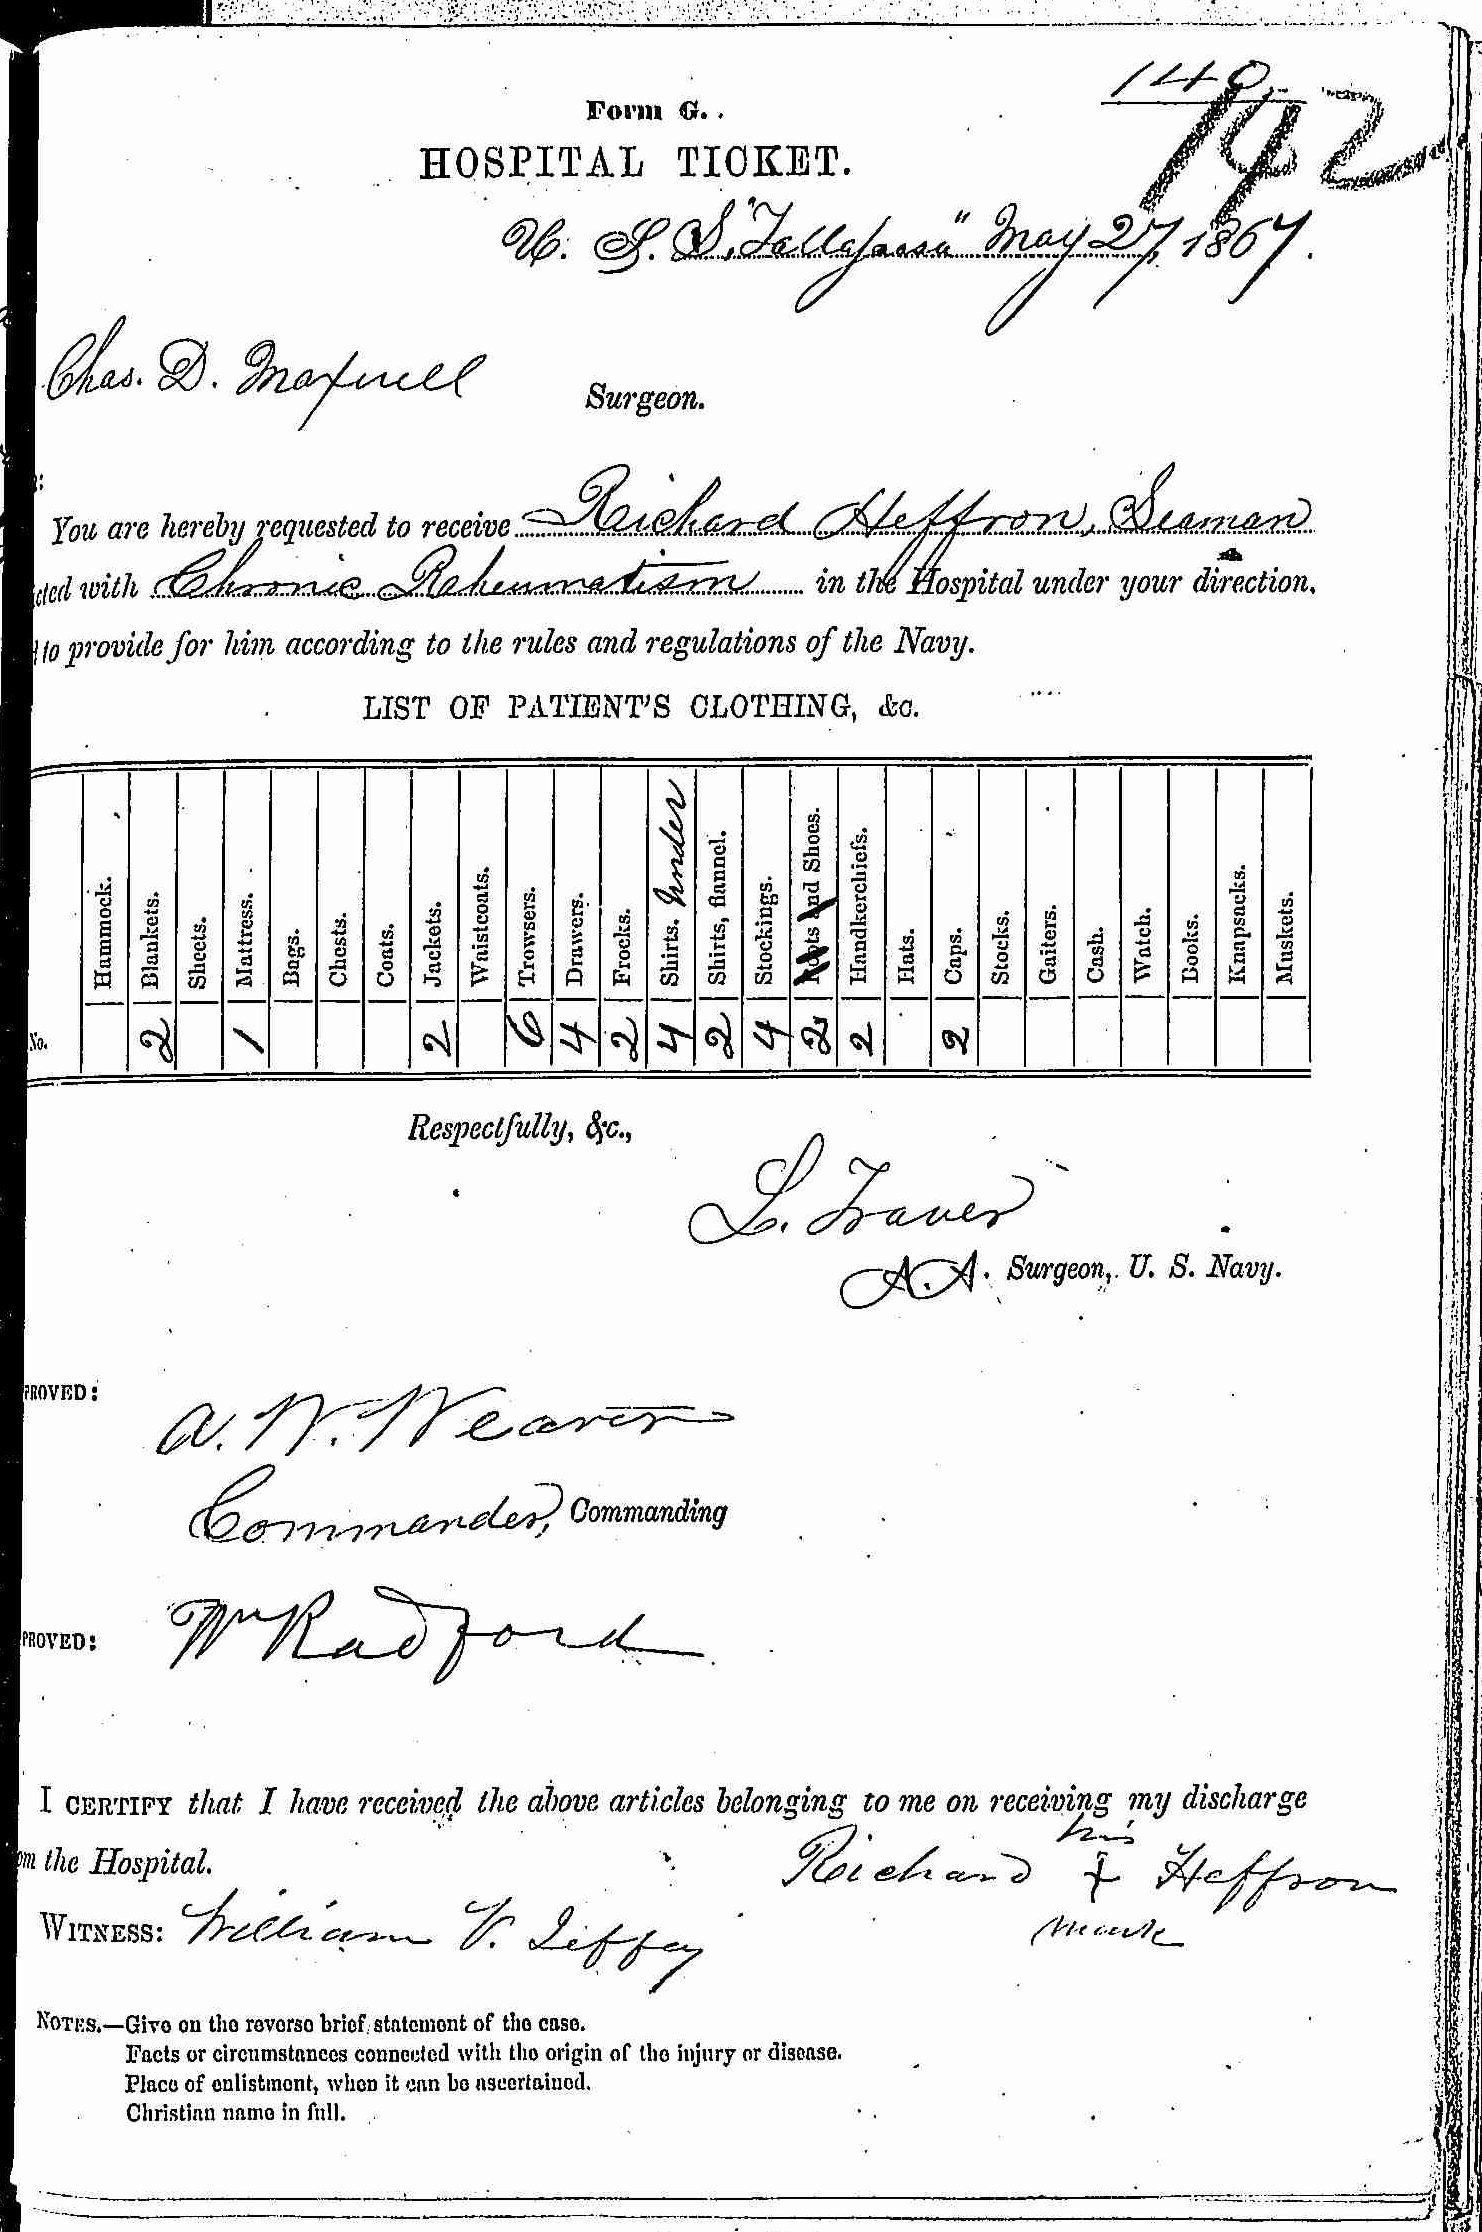 140.
142
Form G.
HOSPITAL TICKET.
U. S. S. "Tallapoosa" May 27, 1867.
Chas. D. Maxwell Surgeon.
You are hereby requested to receive Richard Heffron, Seaman
cted with Chronic Raheumatism in the Hospital under your direction,
to provide for him according to the rules and regulations of the Navy.
LIST OF PATIENT'S CLOTHING, &c.
Hammock. Blankets. Sheets. Mattress. Bags. Chests. Coats. Jackets. Waistcoats. Trowsers. Drawers. Frocks. Shirts. Under Shirts, flannel. Stockings. Boots and Shoes. Handkerchiefs. Hats. Caps. Stocks. Gaiters. Cash. Watch. Books. Knapsacks. Muskets.
No. 2 1 2 6 4 2 4 2 4 2 2 2
Respectfully, &c.,
L. Traver
A. A. Surgeon, U. S. Navy.
PROVED:
A. W. Weaver
Commander, Commanding
PROVED: Wm Radford
I CERTIFY that I have received the above articles belonging to me on receiving my discharge
om the Hospital.
his
Richard + Heffron
mark
WITNESS: William V. Jeffey
NOTES.—Give on the reverse brief statement of the case.
Facts or circumstances connected with the origin of the injury or disease.
Place of enlistment, when it can be ascertained.
Christian name in full.